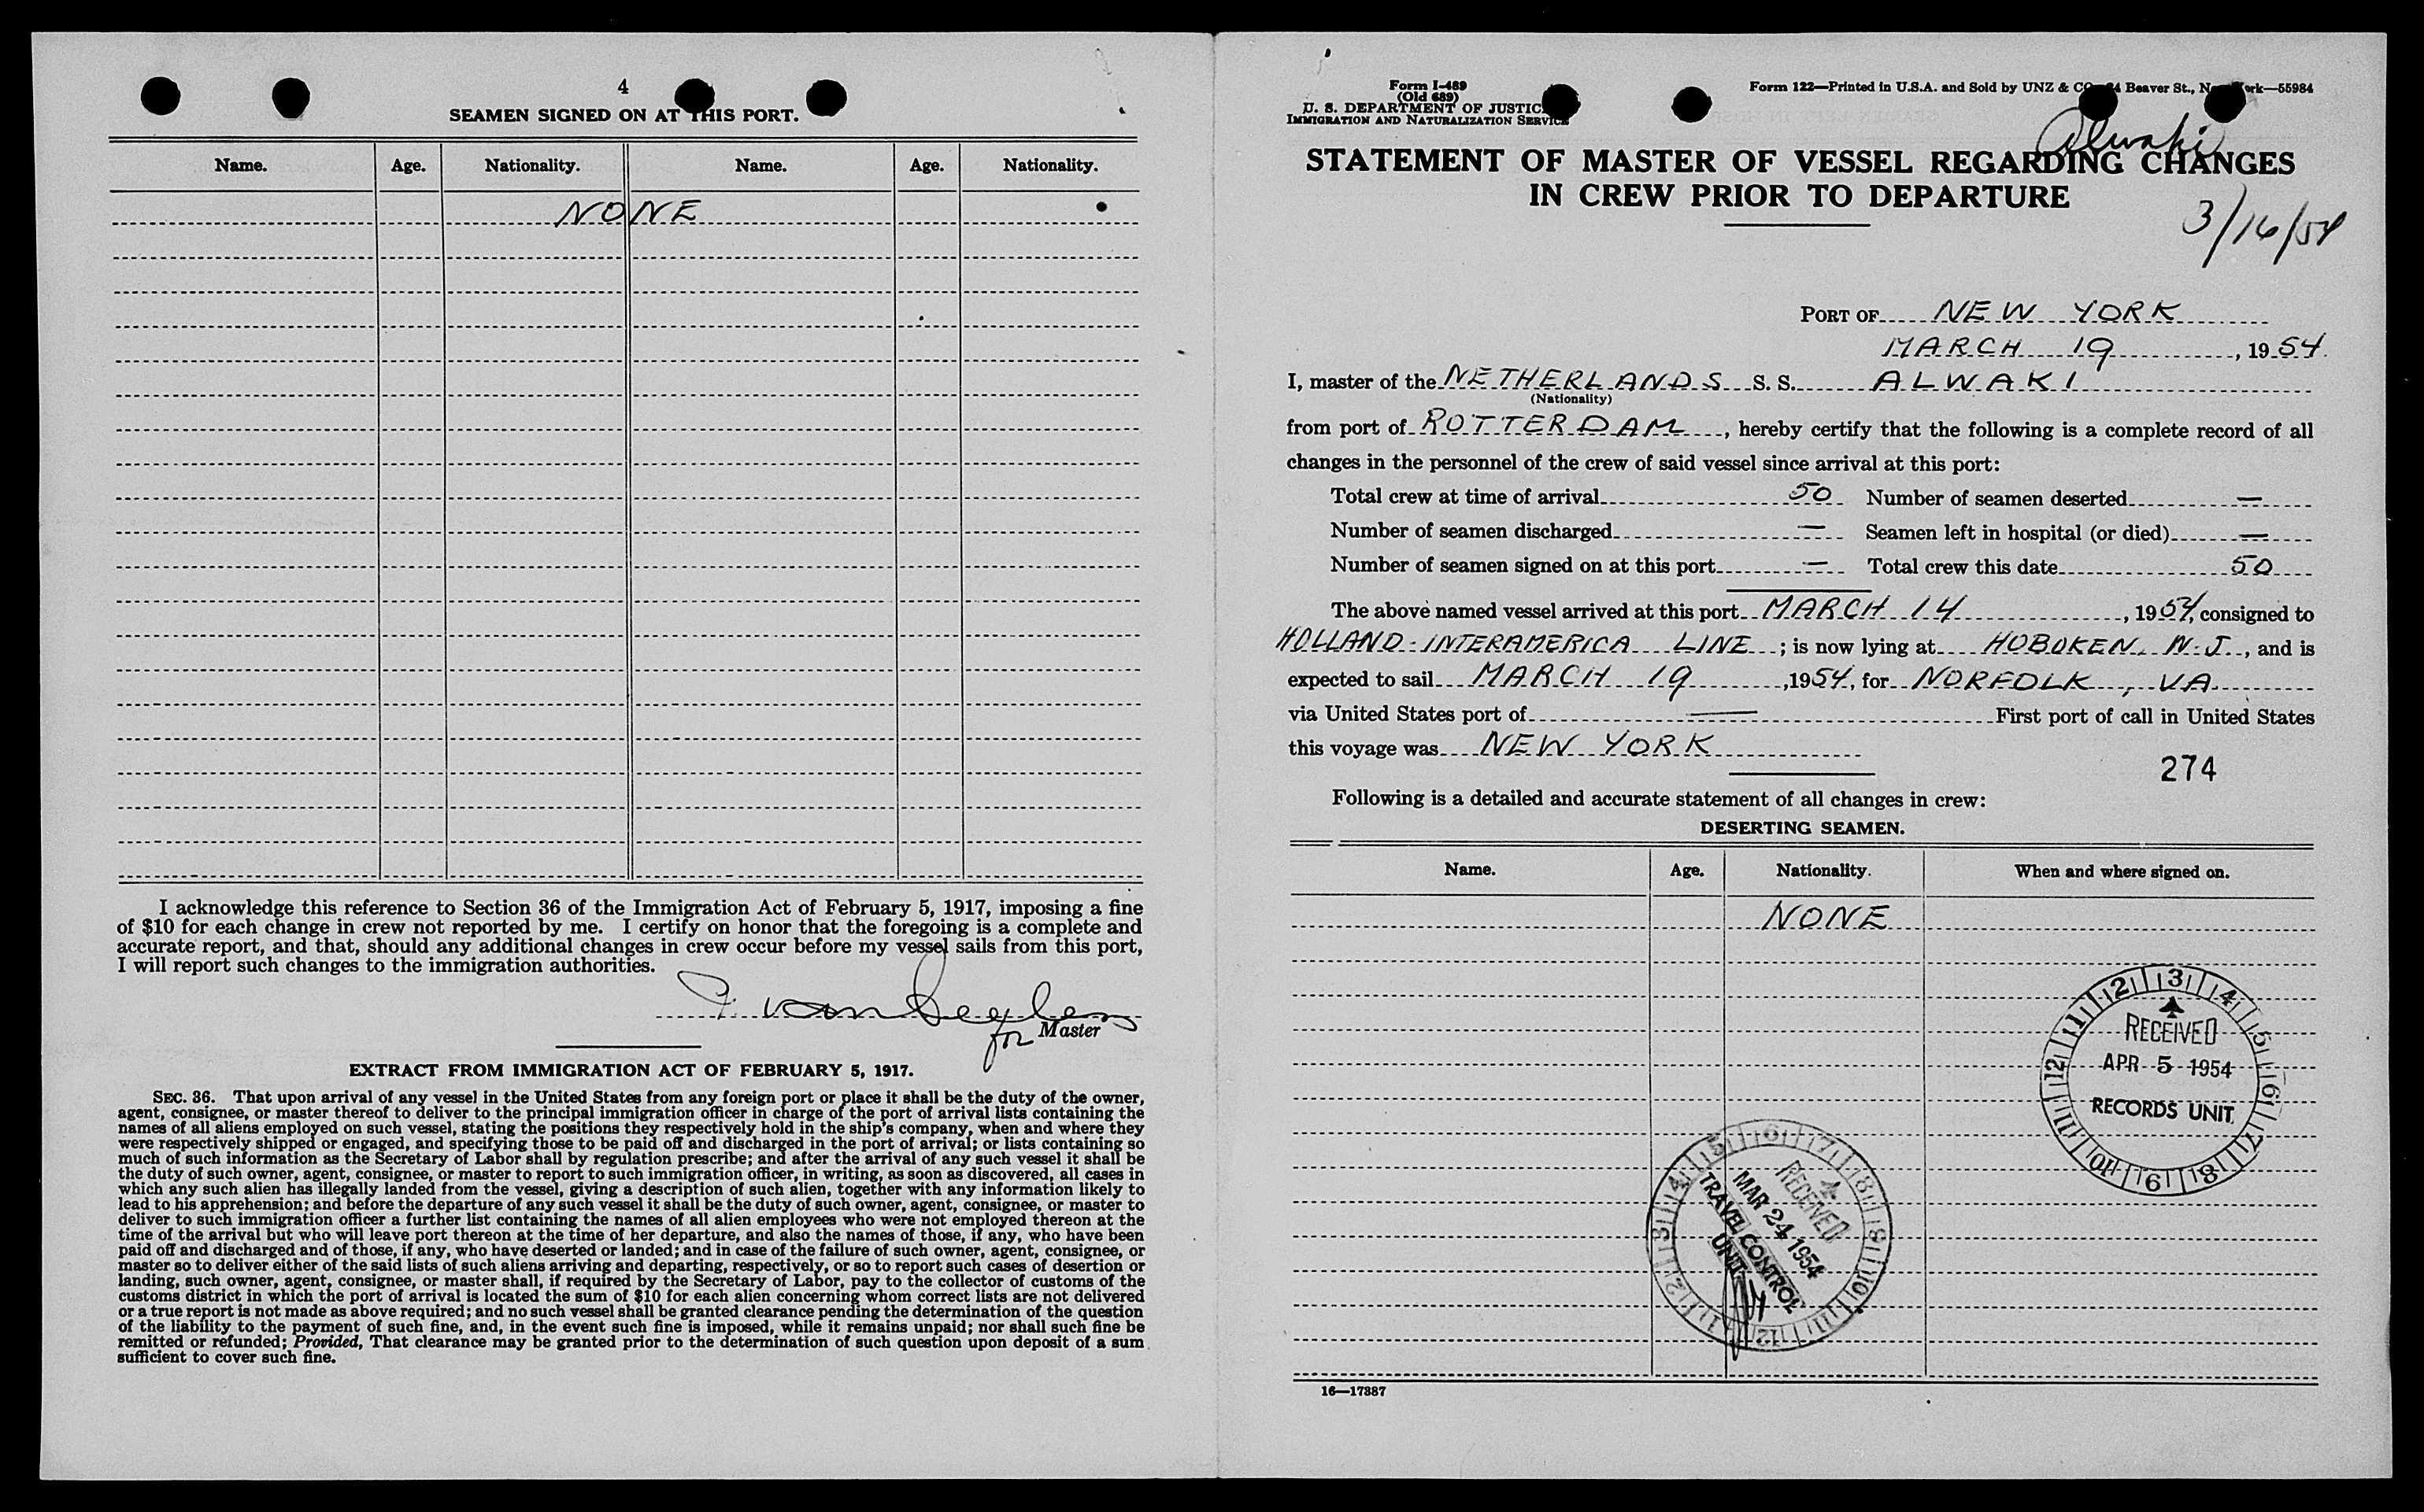 4
SEAMEN SIGNED ON AT THIS PORT.
Name. Age. Nationality. Name. Age. Nationality.
NONE
I acknowledge this reference to Section 36 of the Immigration Act of February 5, 1917, imposing a fine
of $10 for each change in crew not reported by me. I certify on honor that the foregoing is a complete and
accurate report, and that, should any additional changes in crew occur before my vessel sails from this port,
I will report such changes to the immigration authorities.
for Master
EXTRACT FROM IMMIGRATION ACT OF FEBRUARY 5, 1917.
SEC. 36. That upon arrival of any vessel in the United States from any foreign port or place it shall be the duty of the owner,
agent, consignee, or master thereof to deliver to the principal immigration officer in charge of the port of arrival lists containing the
names of all aliens employed on such vessel, stating the positions they respectively hold in the ship's company, when and where they
were respectively shipped or engaged, and specifying those to be paid off and discharged in the port of arrival; or lists containing so
much of such information as the Secretary of Labor shall by regulation prescribe; and after the arrival of any such vessel it shall be
the duty of such owner, agent, consignee, or master to report to such immigration officer, in writing, as soon as discovered, all cases in
which any such alien has illegally landed from the vessel, giving a description of such alien, together with any information likely to
lead to his apprehension; and before the departure of any such vessel it shall be the duty of such owner, agent, consignee, or master to
deliver to such immigration officer a further list containing the names of all alien employees who were not employed thereon at the
time of the arrival but who will leave port thereon at the time of her departure, and also the names of those, if any, who have been
paid off and discharged and of those, if any, who have deserted or landed; and in case of the failure of such owner, agent, consignee, or
master so to deliver either of the said lists of such aliens arriving and departing, respectively, or so to report such cases of desertion or
landing, such owner, agent, consignee, or master shall, if required by the Secretary of Labor, pay to the collector of customs of the
customs district in which the port of arrival is located the sum of $10 for each alien concerning whom correct lists are not delivered
or a true report is not made as above required; and no such vessel shall be granted clearance pending the determination of the question
of the liability to the payment of such fine, and, in the event such fine is imposed, while it remains unpaid; nor shall such fine be
remitted or refunded; Provided, That clearance may be granted prior to the determination of such question upon deposit of a sum
sufficient to cover such fine.
Form I-489
(Old 689)
U. S. DEPARTMENT OF JUSTICE
IMMIGRATION AND NATURALIZATION SERVICE
Form 122—Printed in U.S.A. and Sold by UNZ & CO. 24 Beaver St., New York—55984
Alwaki
STATEMENT OF MASTER OF VESSEL REGARDING CHANGES
IN CREW PRIOR TO DEPARTURE
3/16/54
PORT OF NEW YORK
MARCH 19, 1954
I, master of the NETHERLANDS S. S. ALWAKI
(Nationality)
from port of ROTTERDAM, hereby certify that the following is a complete record of all
changes in the personnel of the crew of said vessel since arrival at this port:
Total crew at time of arrival 50 Number of seamen deserted —
Number of seamen discharged — Seamen left in hospital (or died) —
Number of seamen signed on at this port — Total crew this date 50
The above named vessel arrived at this port MARCH 14, 1954, consigned to
HOLLAND-INTERAMERICA LINE; is now lying at HOBOKEN. N.J., and is
expected to sail MARCH 19, 1954, for NORFOLK, VA
via United States port of — First port of call in United States
this voyage was NEW YORK
274
Following is a detailed and accurate statement of all changes in crew:
DESERTING SEAMEN.
Name. Age. Nationality. When and where signed on.
NONE
12 1 2 3 4 5 6 7 8 9 10 11
RECEIVED
APR 5 1954
RECORDS UNIT
12 1 2 3 4 5 6 7 8 9 10 11
RECEIVED
MAR 24 1954
TRAVEL CONTROL
UNIT
16—17887